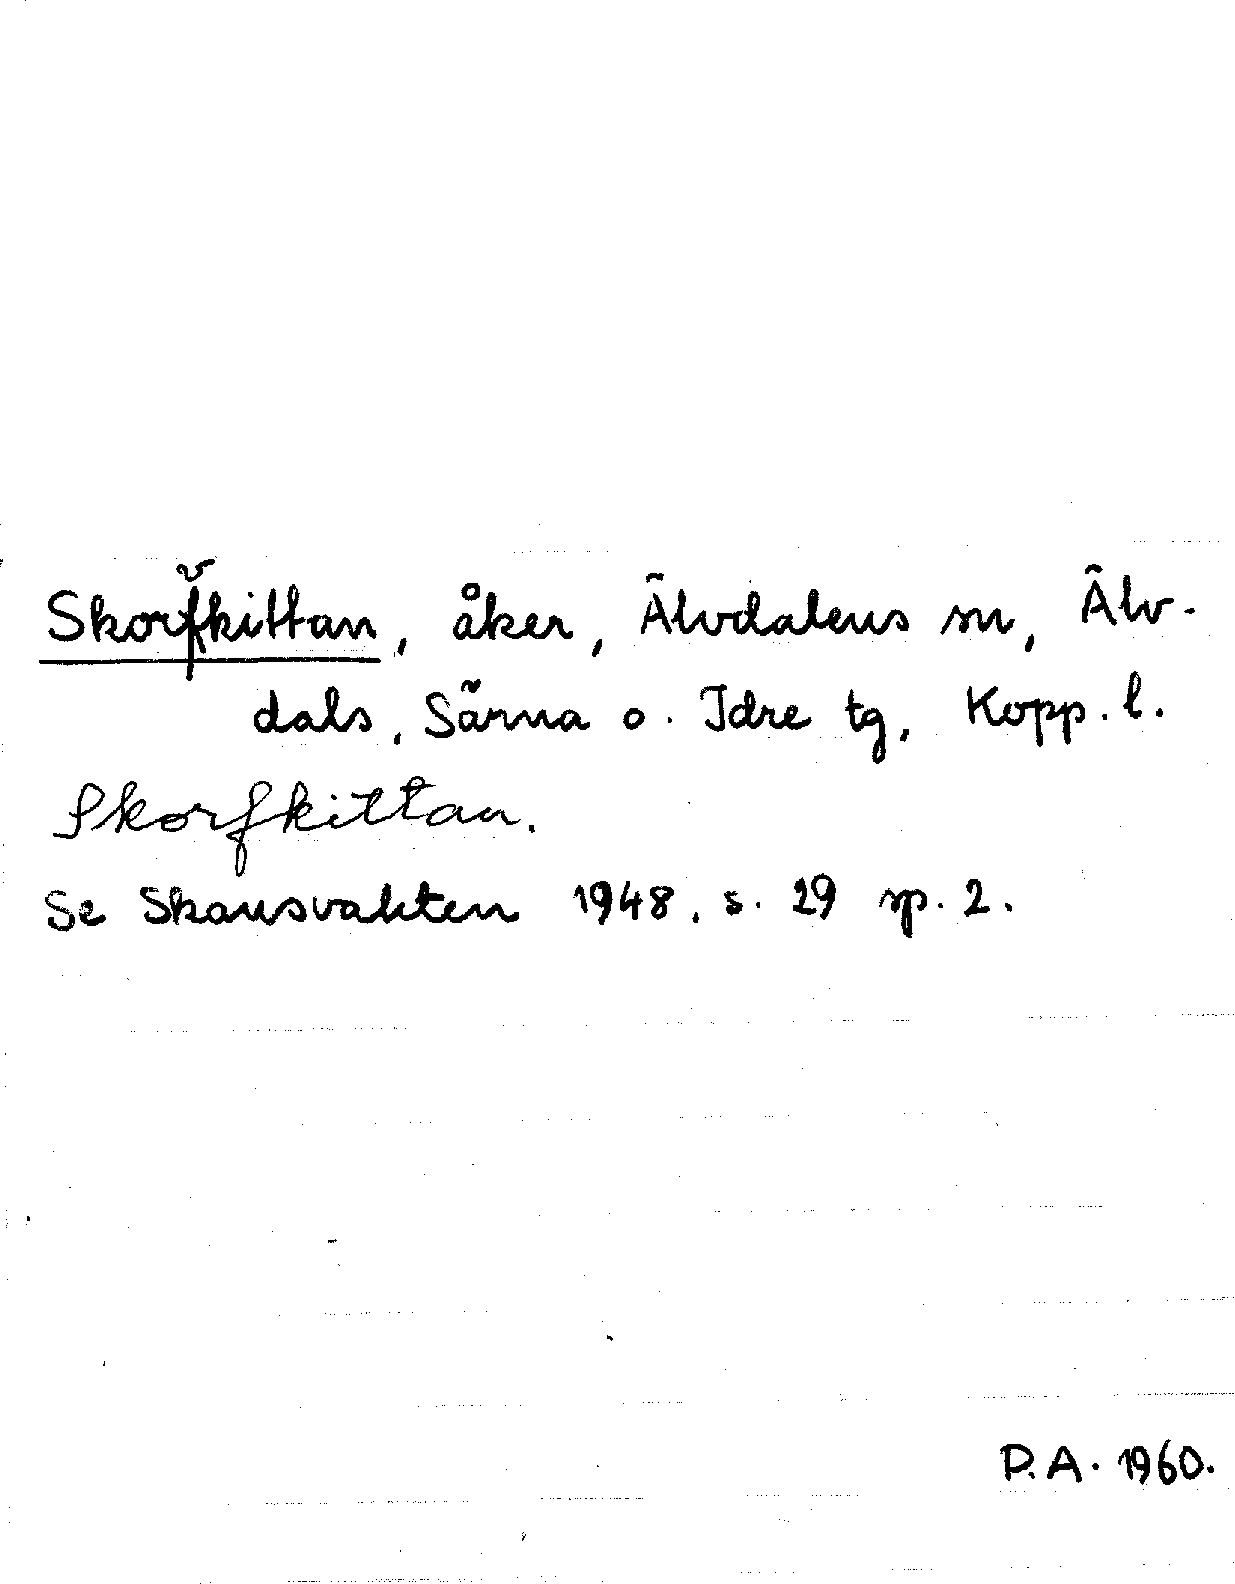 Skorvkittan, åker, Älvdalens sn, Älv-
dals, Särna o. Idre tg, Kopp. l.
Skorfkittan.
Se Skansvakten 1948, s. 29 sp. 2.
D.A. 1960.